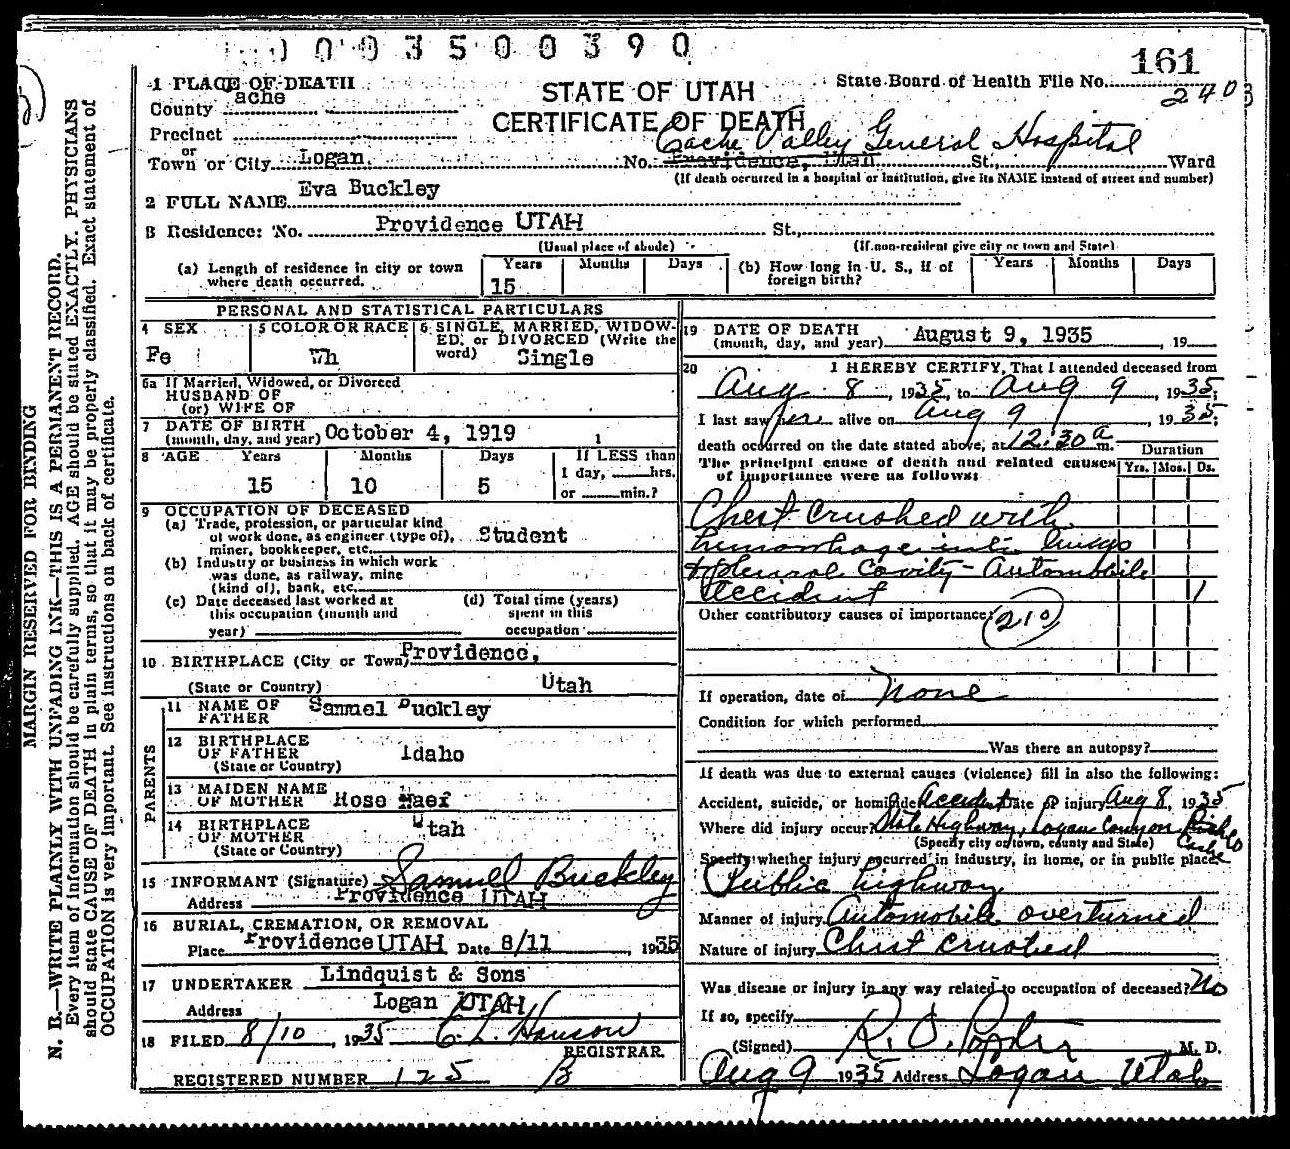 0003500390
161
2403
1 PLACE OF DEATH
STATE OF UTAH
CERTIFICATE OF DEATH
State Board of Health File No.
County Cache
Precinct
or
Town or City Logan No. Providence, Utah St., Ward
Cache Valley General Hospital
(If death occurred in a hospital or institution, give its NAME instead of street and number)
2 FULL NAME Eva Buckley
B Residence: No. Providence UTAH St.,
(Usual place of abode) (If non-resident give city or town and State)
(a) Length of residence in city or town where death occurred. Years 15 Months Days
(b) How long in U. S., if of foreign birth? Years Months Days
PERSONAL AND STATISTICAL PARTICULARS
4 SEX Fe
5 COLOR OR RACE Wh
6 SINGLE, MARRIED, WIDOWED, or DIVORCED (Write the word) Single
6a If Married, Widowed, or Divorced
HUSBAND OF
(or) WIFE OF
7 DATE OF BIRTH
(month, day, and year) October 4, 1919
8 AGE Years 15 Months 10 Days 5
If LESS than
1 day, hrs.
or min.?
9 OCCUPATION OF DECEASED
(a) Trade, profession, or particular kind
of work done, as engineer (type of),
miner, bookkeeper, etc. Student
(b) Industry or business in which work
was done, as railway, mine
(kind of), bank, etc.
(c) Date deceased last worked at
this occupation (month and
year)
(d) Total time (years)
spent in this
occupation
10 BIRTHPLACE (City or Town) Providence,
(State or Country) Utah
PARENTS
11 NAME OF
FATHER Samuel Buckley
12 BIRTHPLACE
OF FATHER Idaho
(State or Country)
13 MAIDEN NAME
OF MOTHER Rose
14 BIRTHPLACE
OF MOTHER Utah
(State or Country)
15 INFORMANT (Signature) Samuel Buckley
Address Providence UTAH
16 BURIAL, CREMATION, OR REMOVAL
Place Providence UTAH Date 8/11, 1935
17 UNDERTAKER Lindquist & Sons
Address Logan UTAH
18 FILED 8/10, 1935 C L Hanson
REGISTRAR.
REGISTERED NUMBER 125 B
19 DATE OF DEATH
(month, day, and year) August 9, 1935, 19
20 I HEREBY CERTIFY, That I attended deceased from
Aug 8, 1935, to Aug 9, 1935;
I last saw her alive on Aug 9, 1935;
death occurred on the date stated above, at 12:30 a m.
The principal cause of death and related causes
of importance were as follows:
Duration
Yrs. Mos. Ds.
Chest crushed with
hemorrhage into lungs
+ pleural cavity - Automobile
Accident 1
Other contributory causes of importance:
210
If operation, date of None
Condition for which performed
Was there an autopsy?
If death was due to external causes (violence) fill in also the following:
Accident, suicide, or homicide Accident Date of injury Aug 8, 1935
Where did injury occur? State Highway, Logan Canyon
(Specify city or town, county and State)
Specify whether injury occurred in industry, in home, or in public place.
Public highway
Manner of injury Automobile overturned
Nature of injury Chest crushed
Was disease or injury in any way related to occupation of deceased? No
If so, specify
(Signed) R. O. Porter M. D.
Aug 9 1935 Address Logan Utah
MARGIN RESERVED FOR BINDING
N. B.—WRITE PLAINLY WITH UNFADING INK—THIS IS A PERMANENT RECORD.
Every item of information should be carefully supplied. AGE should be stated EXACTLY. PHYSICIANS
should state CAUSE OF DEATH in plain terms, so that it may be properly classified. Exact statement of
OCCUPATION is very important. See instructions on back of certificate.